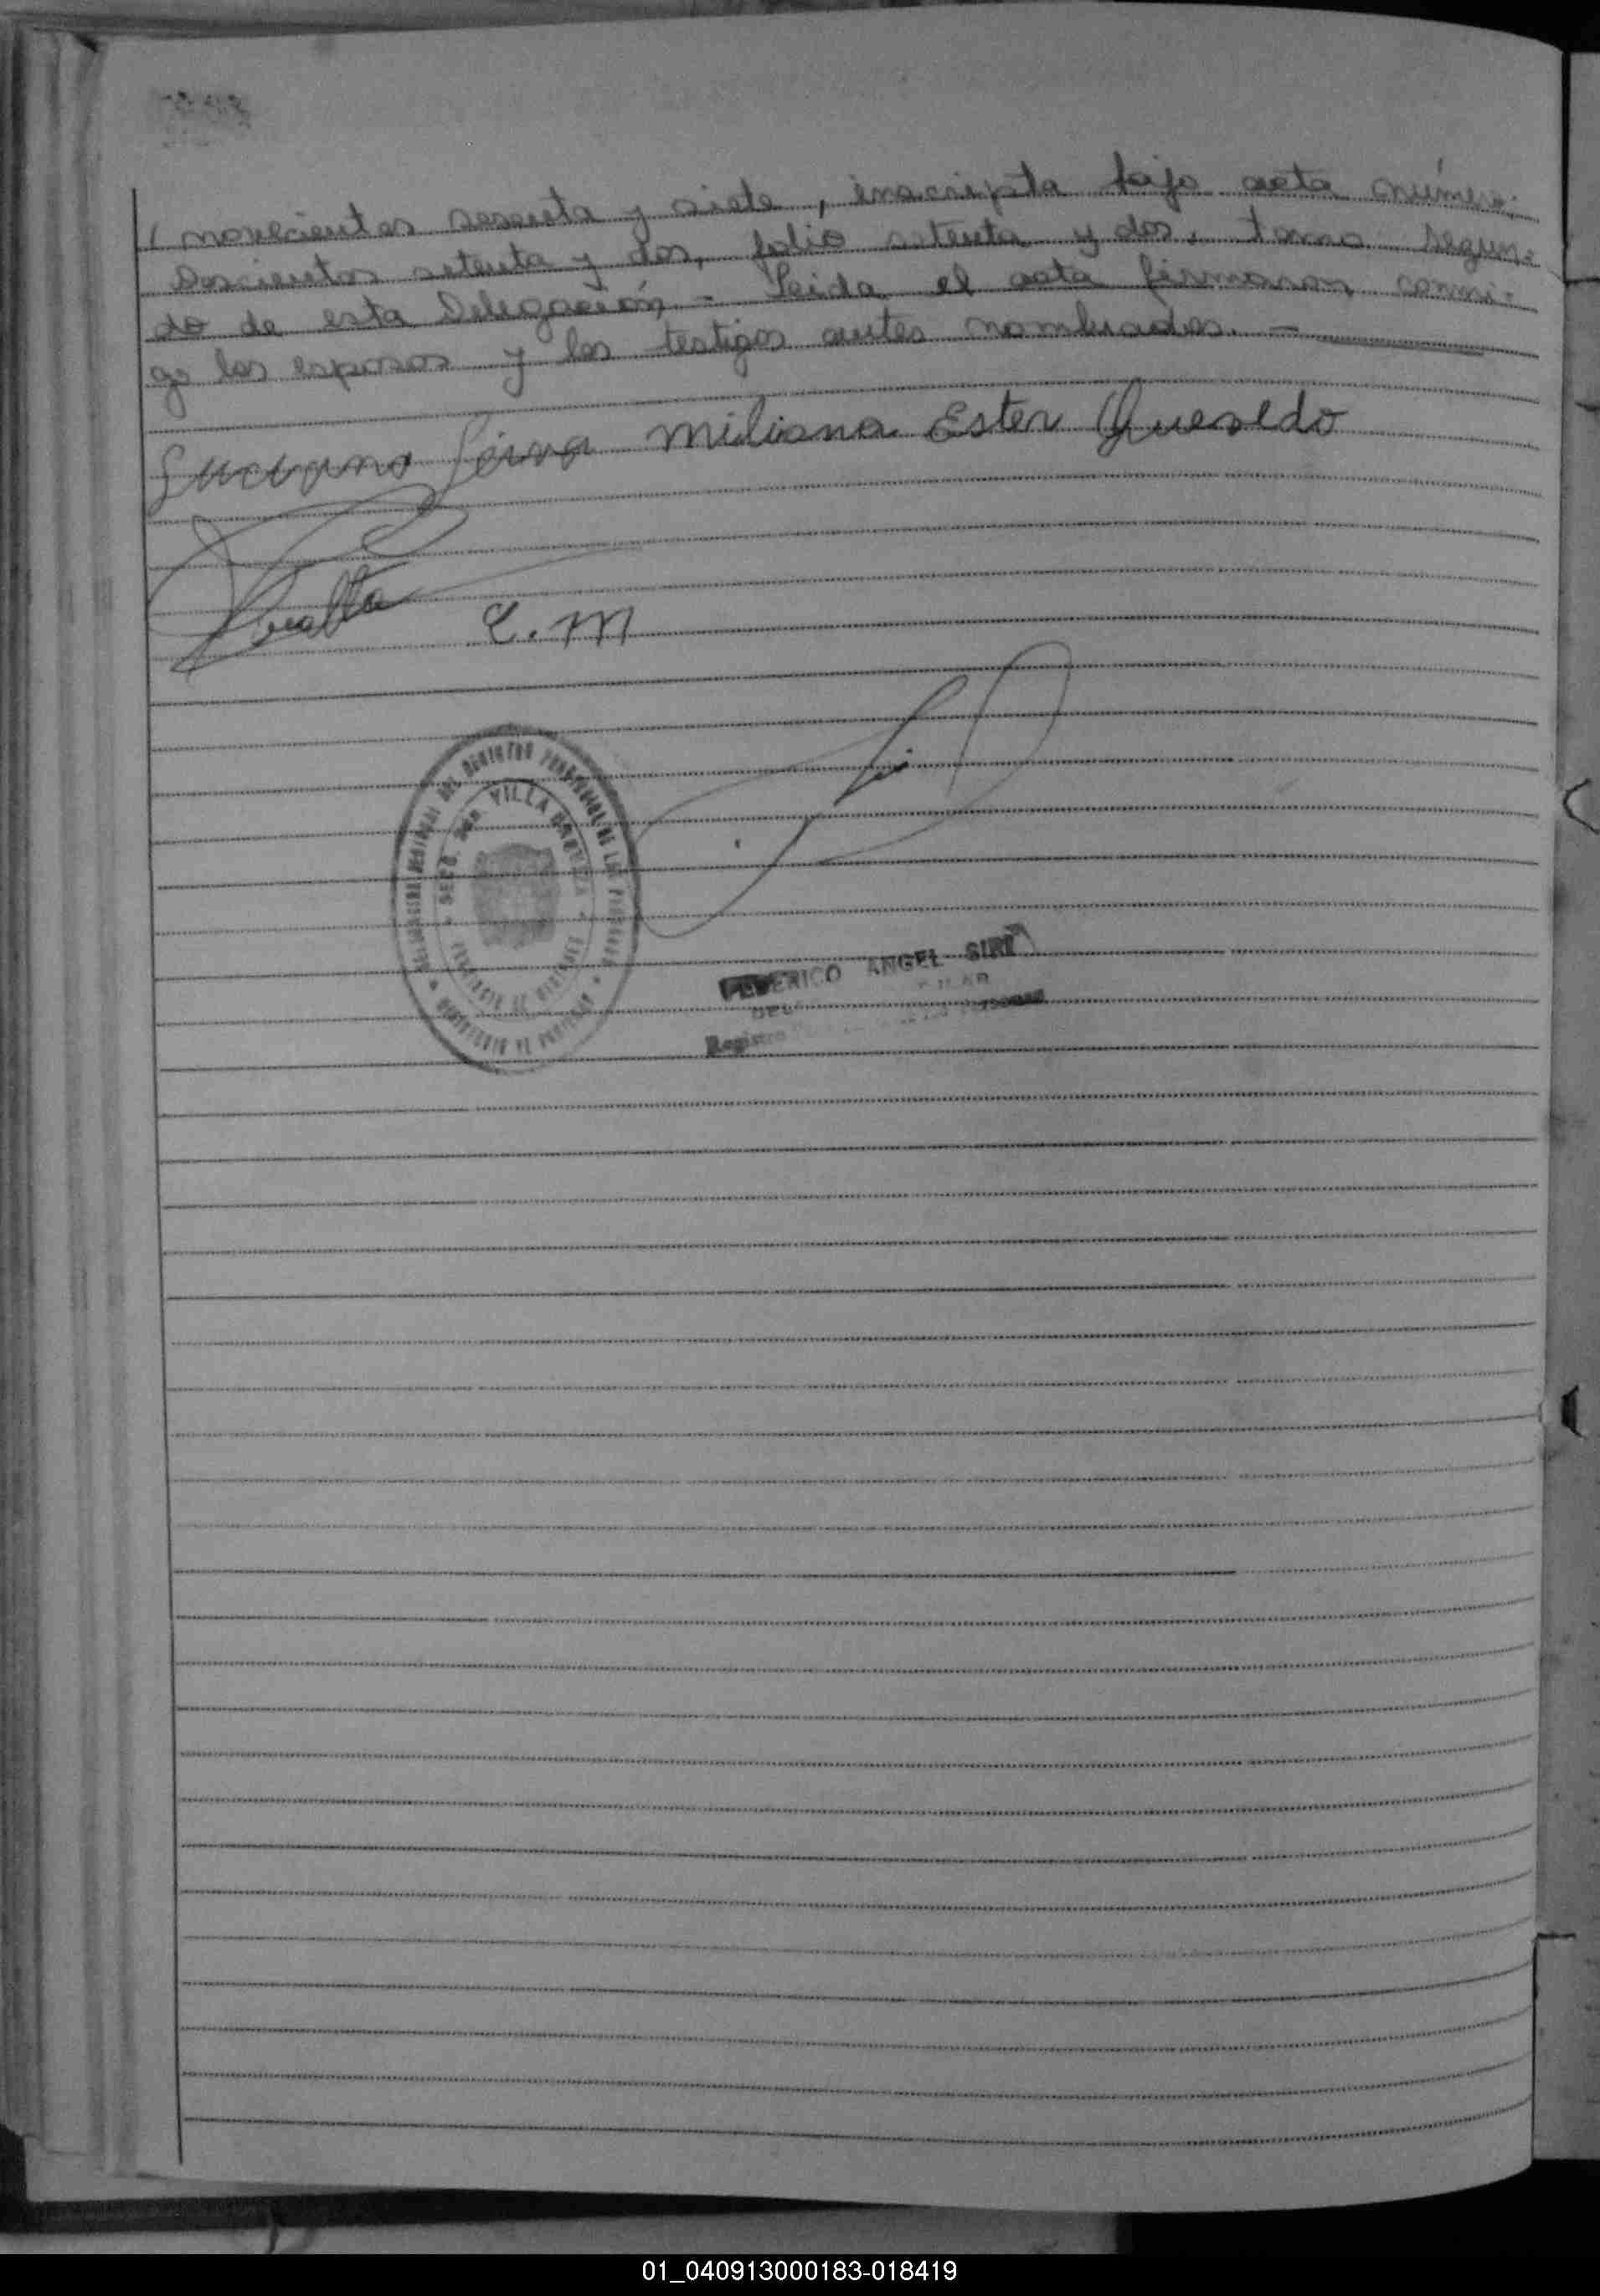 novecientos sesenta y siete, inscripta bajo acta número:
Doscientos setenta y dos, folio setenta y dos, tomo segun-
do de esta Delegación - Leida el acta firmaron conmi-
go los esposos y los testigos antes nombrados. -
Luciano Miliana Ester Quevedo
Peralta C. M
DEL REGISTRO PROVINCIAL DE LAS PERSONAS
SECC. VILLA
FEDERICO ANGEL SIRI
Registro
01_040913000183-018419